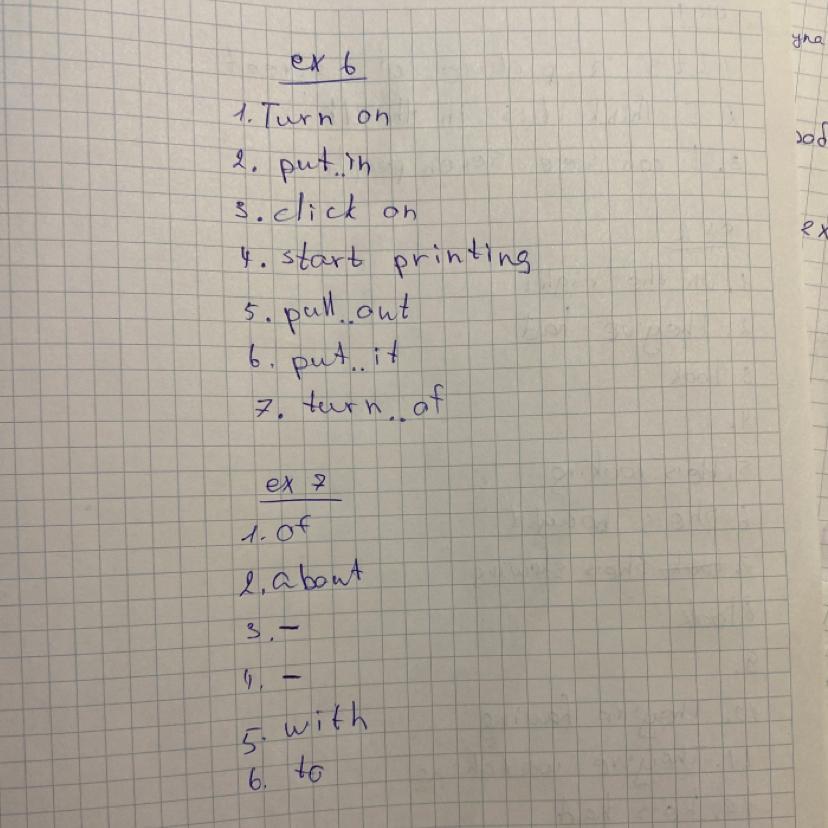 ex 6
1. Turn on
2. put..in
3. click on
4. start printing
5. pull..out
6. put..it
7. turn..of
ex 7
1. of
2. about
3. –
4. –
5. with
6. to
ex